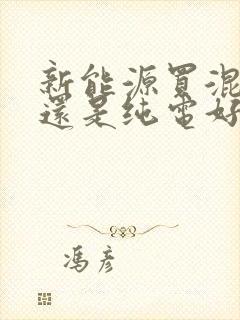 新能源買混
還是纯電好
馮彦